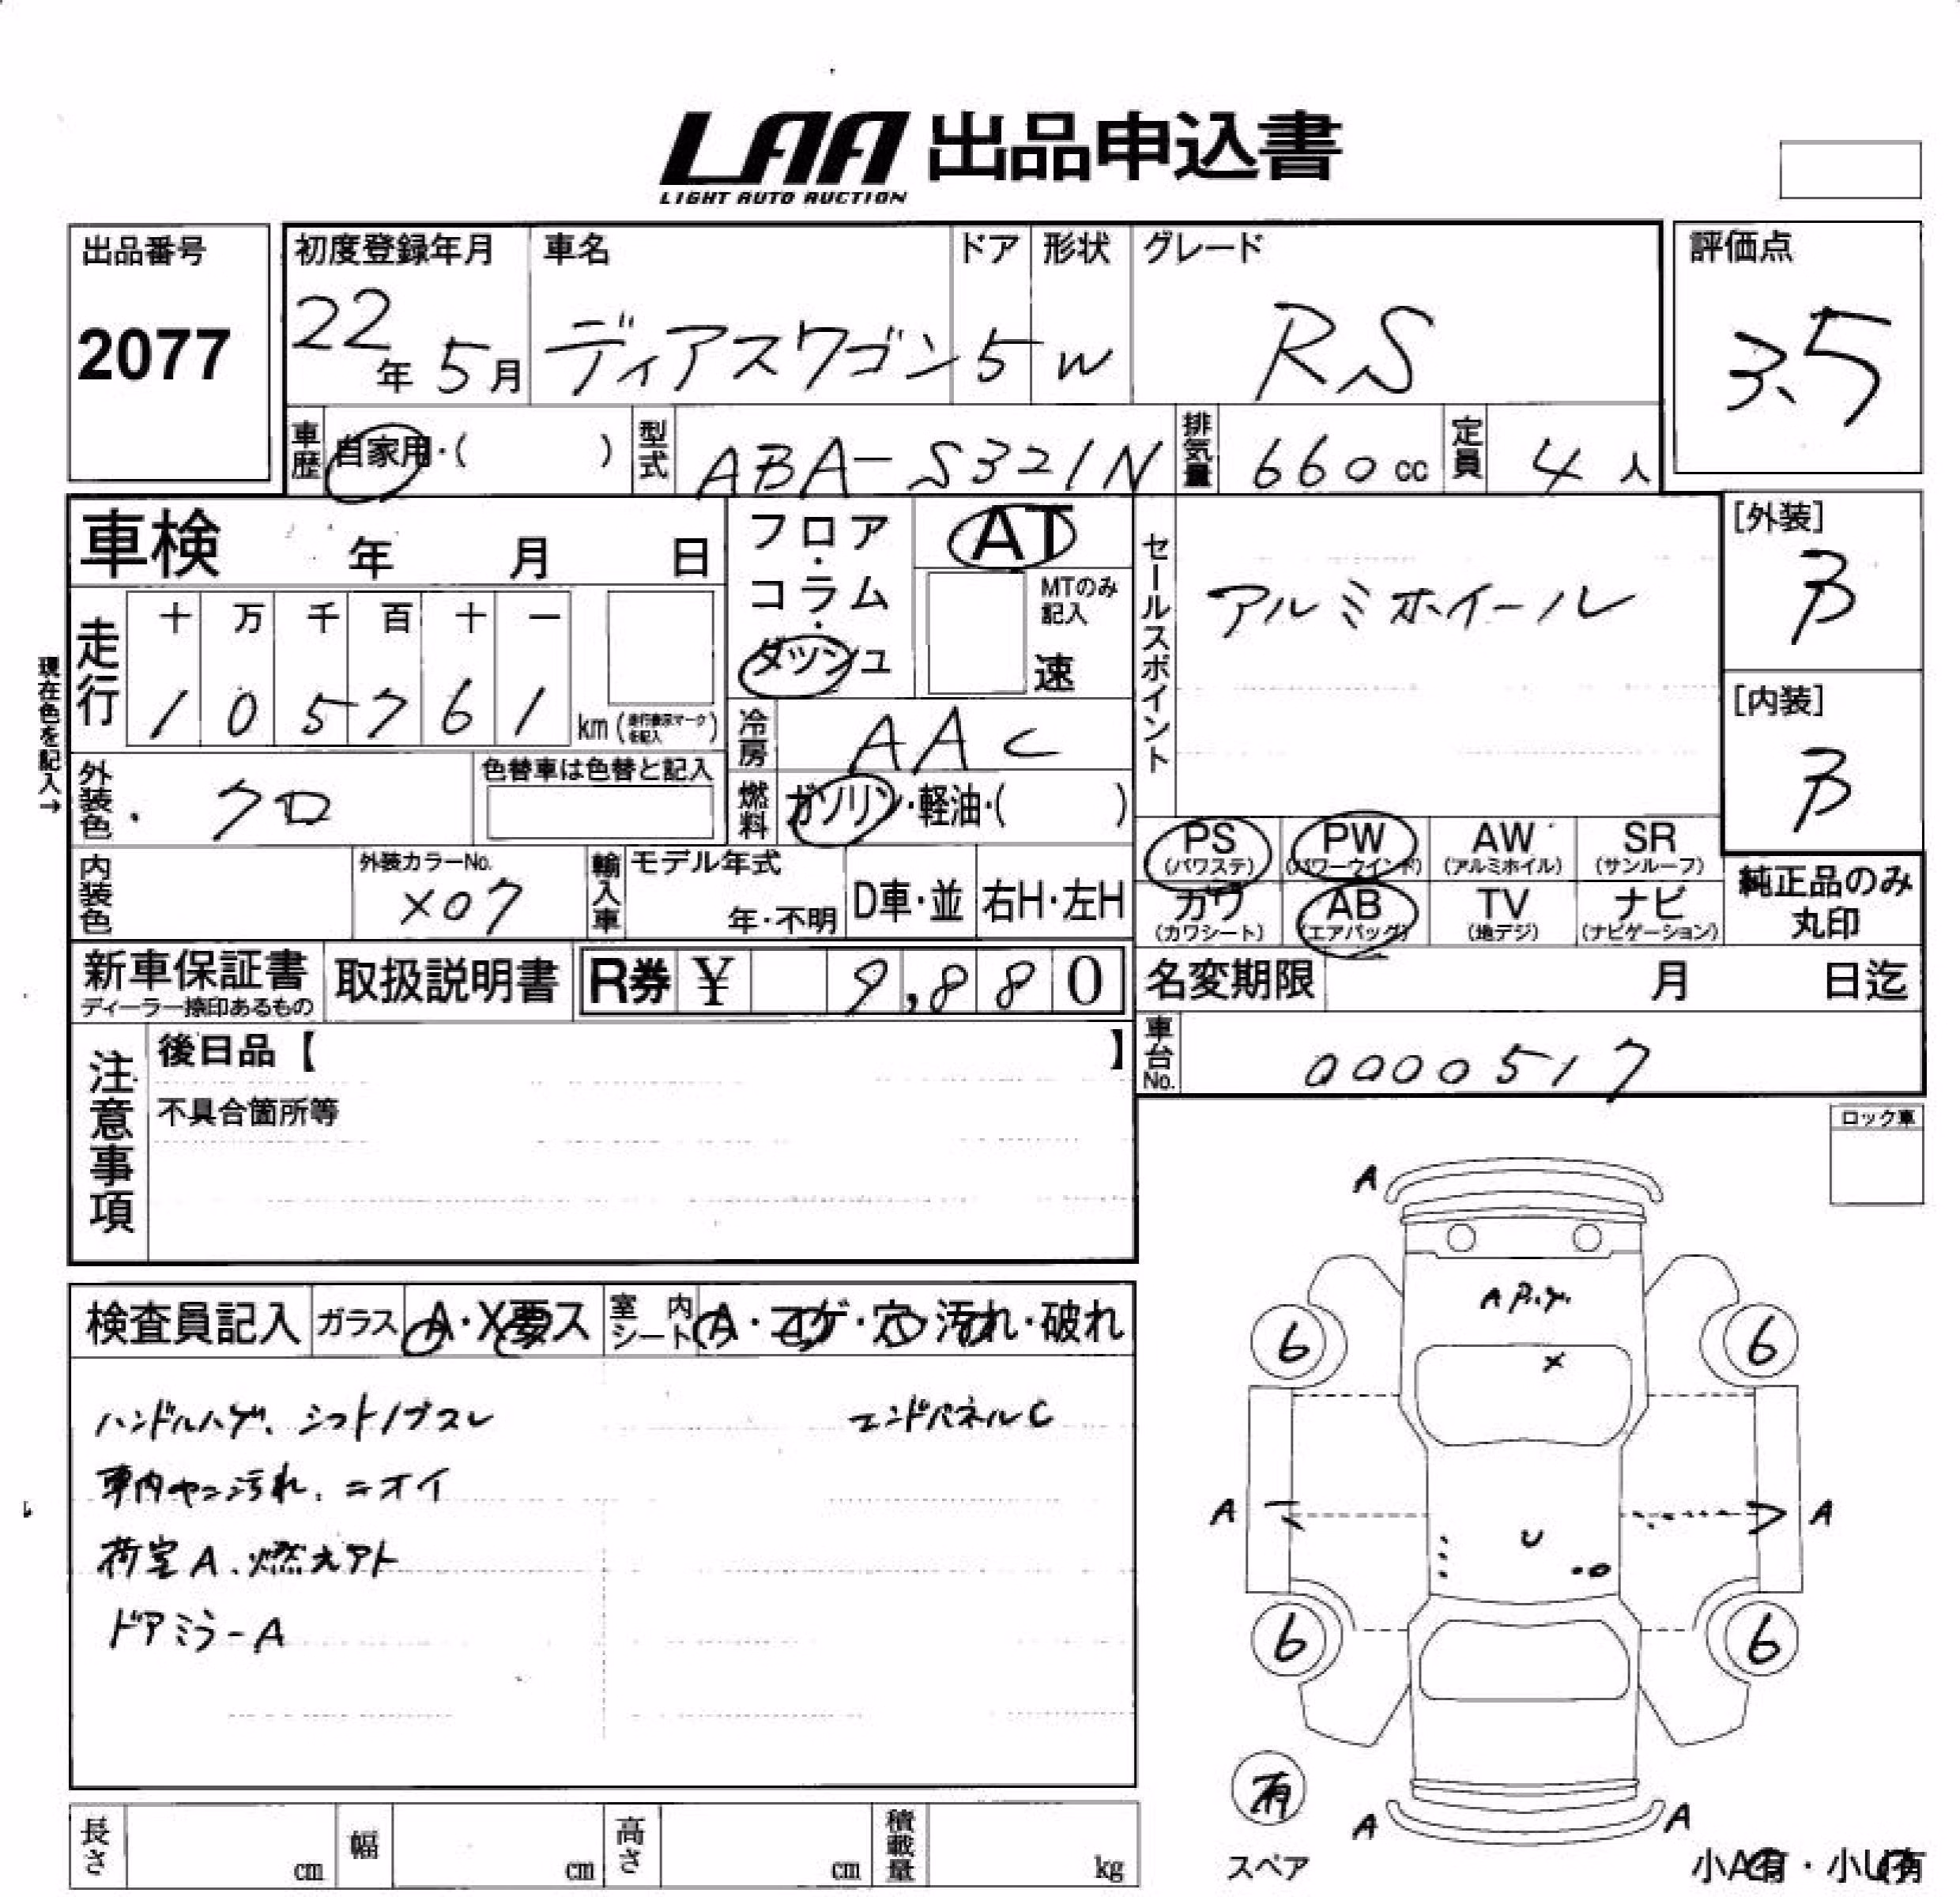 LAA 出品申込書
LIGHT AUTO AUCTION
出品番号
2077
初度登録年月
22年 5月
車名
ディアスワゴン
ドア
5
形状
W
グレード
RS
評価点
3.5
車歴 自家用・( )
型式 ABA-S321N
排気量 660cc
定員 4人
車検 年 月 日
フロア・コラム・ダッシュ
AT
MTのみ記入
速
セールスポイント
アルミホイール
[外装]
B
[内装]
B
現在色を記入→
走行
十 万 千 百 十 一
1 0 5 7 6 1 km (走行表示マークを記入)
冷房 AAC
外装色 クロ
色替車は色替と記入
燃料 ガソリン・軽油・( )
内装色
外装カラーNo.
X07
輸入車
モデル年式
年・不明
D車・並
右H・左H
PS (パワステ)
PW (パワーウインド)
AW (アルミホイル)
SR (サンルーフ)
カワ (カワシート)
AB (エアバッグ)
TV (地デジ)
ナビ (ナビゲーション)
純正品のみ
丸印
新車保証書
ディーラー捺印あるもの
取扱説明書
R券 ¥ 9,880
名変期限 月 日迄
車台No. 0000517
注意事項
後日品【 】
不具合箇所等
ロック車
検査員記入
ガラス A・X要ス
室内シート A・コゲ・穴・汚れ・破れ
ハンドルハゲ、シフトノブスレ
エンドパネルC
車内ヤニ汚れ、ニオイ
荷室A、燃えアト
ドアミラーA
A
6
6
X
A
A
U
6
6
有
スペア
A
A
小A有・小U有
長さ cm
幅 cm
高さ cm
積載量 kg